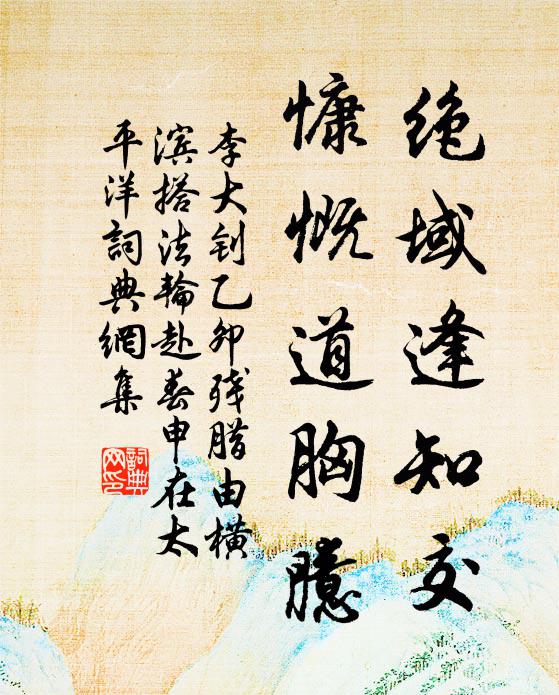 绝域逢知交
慷慨道胸臆
李大钊乙卯残腊由横
滨搭法輪赴春申在太
平洋詞典網集
詞典网印